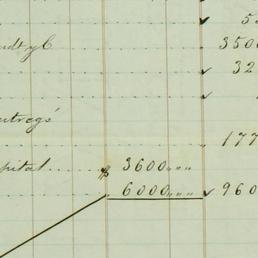 5
ndt y C 350
32
utrags
177
pital $ 3600 " " "
6000 " " " 960